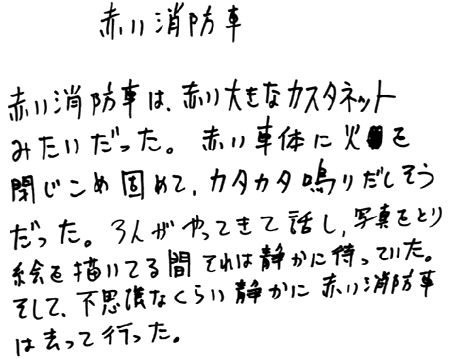 赤い消防車
赤い消防車は、赤い大きなカスタネット
みたいだった。赤い車体に火を
閉じこめ固めて、カタカタ鳴りだしそう
だった。3人がやってきて話し、写真をとり
絵を描いてる間それは静かに待っていた。
そして、不思議なくらい静かに赤い消防車
は去って行った。